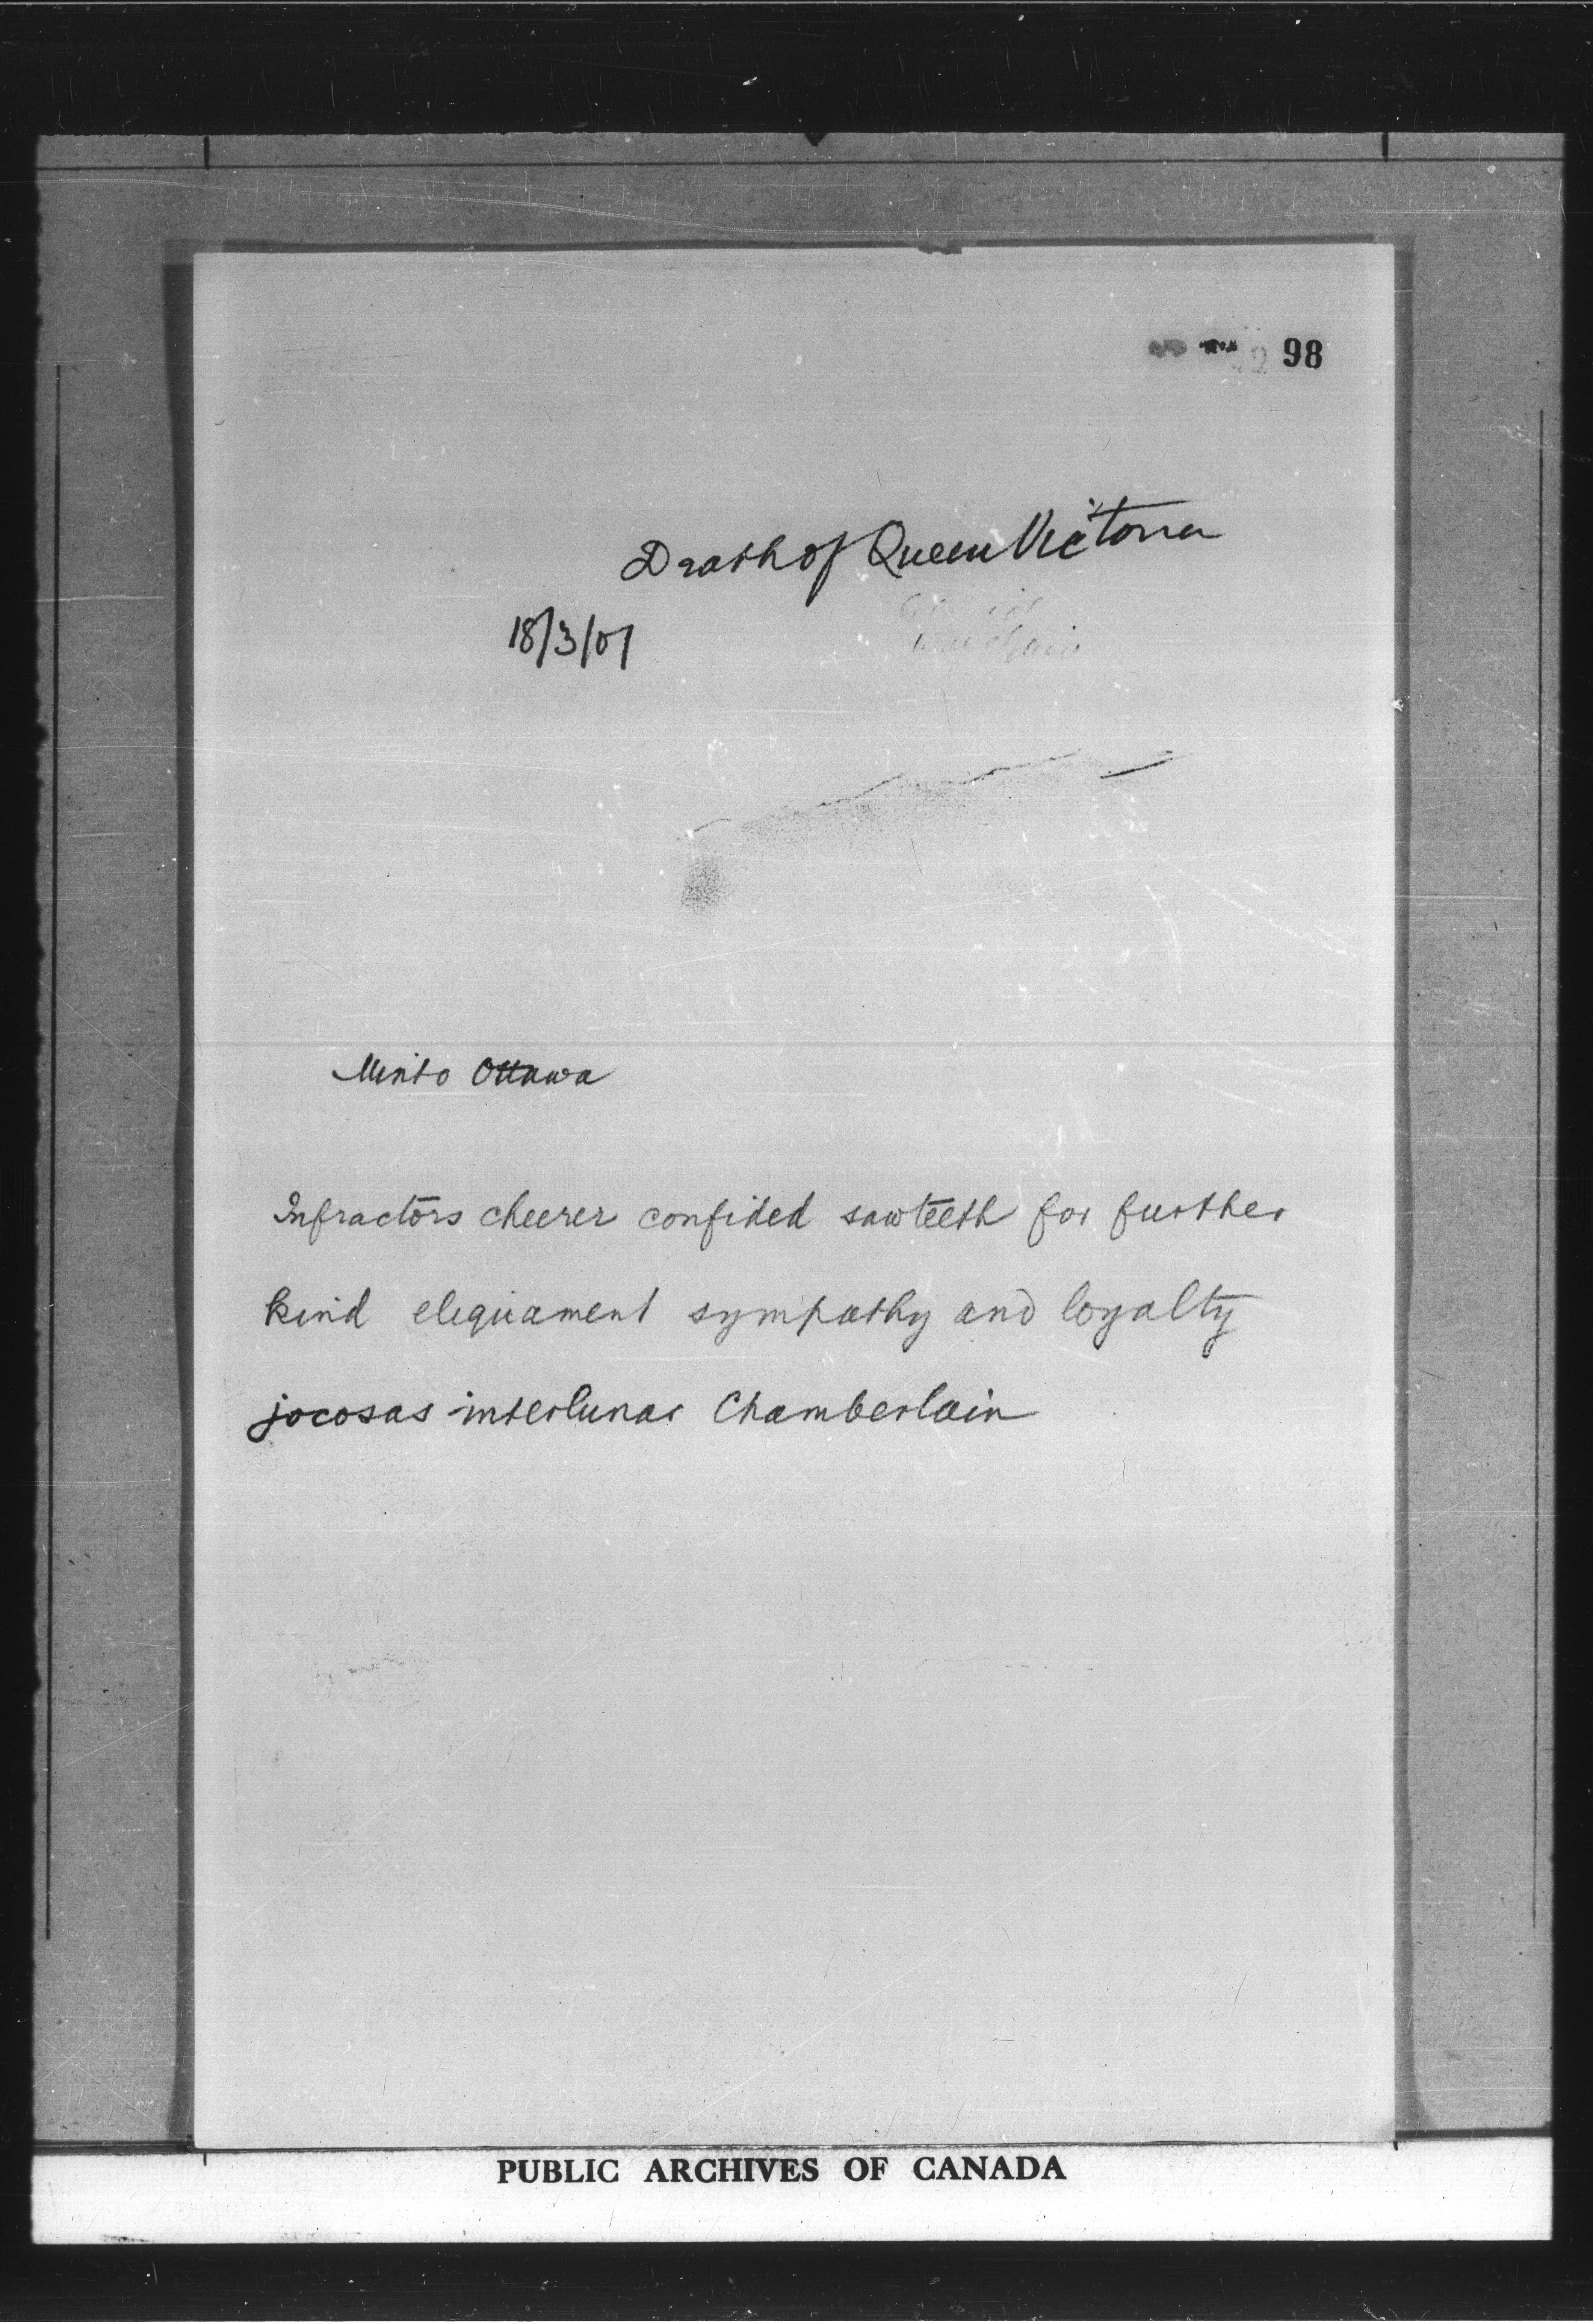 98
Death of Queen Victoria
18/3/01
Minto Ottawa
Infractors cheerer confided sawteeth for further
kind eliquament sympathy and loyalty
jocosas interlunar Chamberlain
PUBLIC ARCHIVES OF CANADA